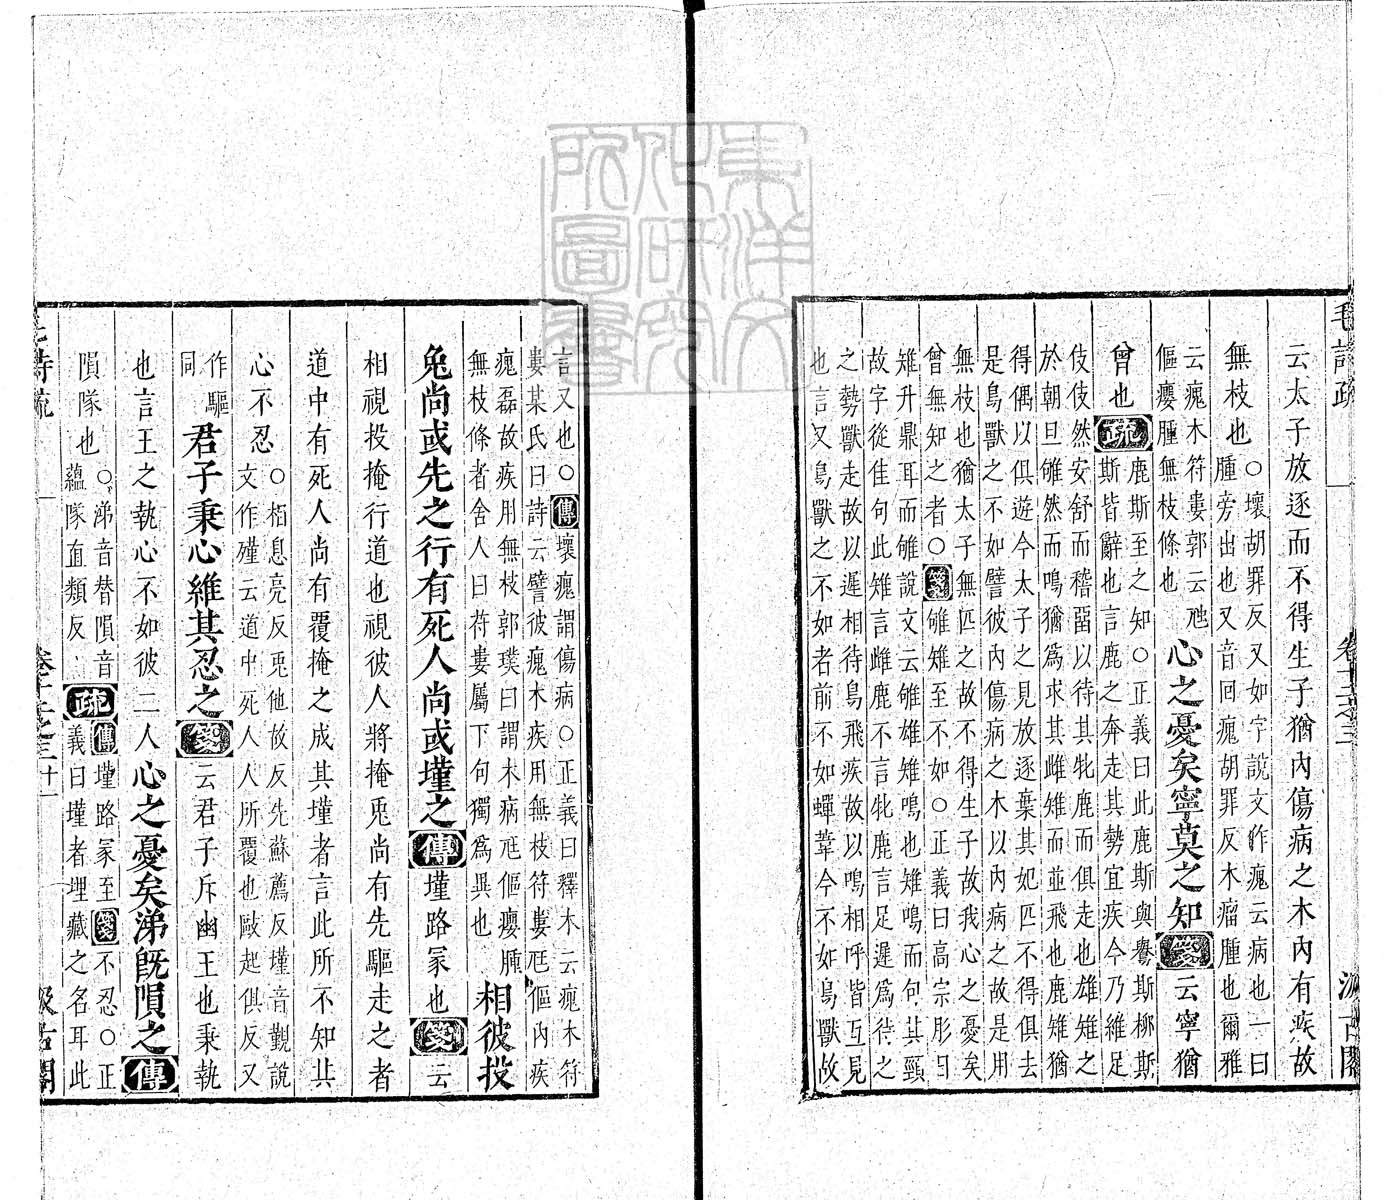 毛詩疏 卷十二之三 汲古閣
云太子放逐而不得生子猶內傷病之木內有疾故
無枝也
○壞胡罪反又如字說文作瘣云病也一曰
腫旁出也又音回瘣胡罪反木瘤腫也爾雅
云瘣木符婁郭云虺
傴癭腫無枝條也
心之憂矣寧莫之知箋云寧猶
曾也疏
鹿斯至之知○正義曰此鹿斯與鸒斯柳斯
斯皆辭也言鹿之奔走其勢宜疾今乃維足
伎伎然安舒而稽留以待其牝鹿而俱走也雄雉之
於朝旦雊然而鳴猶爲求其雌雉而並飛也鹿雉猶
得偶以俱遊今太子之見放逐棄其妃匹不得俱去
是鳥獸之不如譬彼內傷病之木以內病之故是用
無枝也猶太子無匹之故不得生子故我心之憂矣
曾無知之者○箋雊雉至不如○正義曰高宗肜日
雉升鼎耳而雊說文云雊雄雉鳴也雉鳴而句其頸
故字從隹句此雉言雌鹿不言牝鹿言足遲爲待之
之勢獸走故以遲相待鳥飛疾故以鳴相呼皆互見
也言又鳥獸之不如者前不如蟬葦今不如鳥獸故
言又也○傳壞瘣謂傷病○正義曰釋木云瘣木符
婁某氏曰詩云譬彼瘣木疾用無枝符婁尫傴內疾
瘣磊故疾用無枝郭璞曰謂木病尫傴癭腫
無枝條者舍人曰苻婁屬下句獨爲異也
相彼投
兔尚或先之行有死人尚或墐之傳墐路冢也箋云
相視投掩行道也視彼人將掩兔尚有先驅走之者
道中有死人尚有覆掩之成其墐者言此所不知其
心不忍
○相息亮反兎他故反先蘇薦反墐音覲說
文作殣云道中死人人所覆也敺起俱反又
作驅
同
君子秉心維其忍之箋云君子斥幽王也秉執
也言王之執心不如彼二人心之憂矣涕既隕之傳
隕隊也
○涕音替隕音
蘊隊直類反
疏
傳墐路冢至箋不忍○正
義曰墐者埋藏之名耳此
毛詩疏 卷十二之三 十一 汲古閣
東洋文化研究所圖書